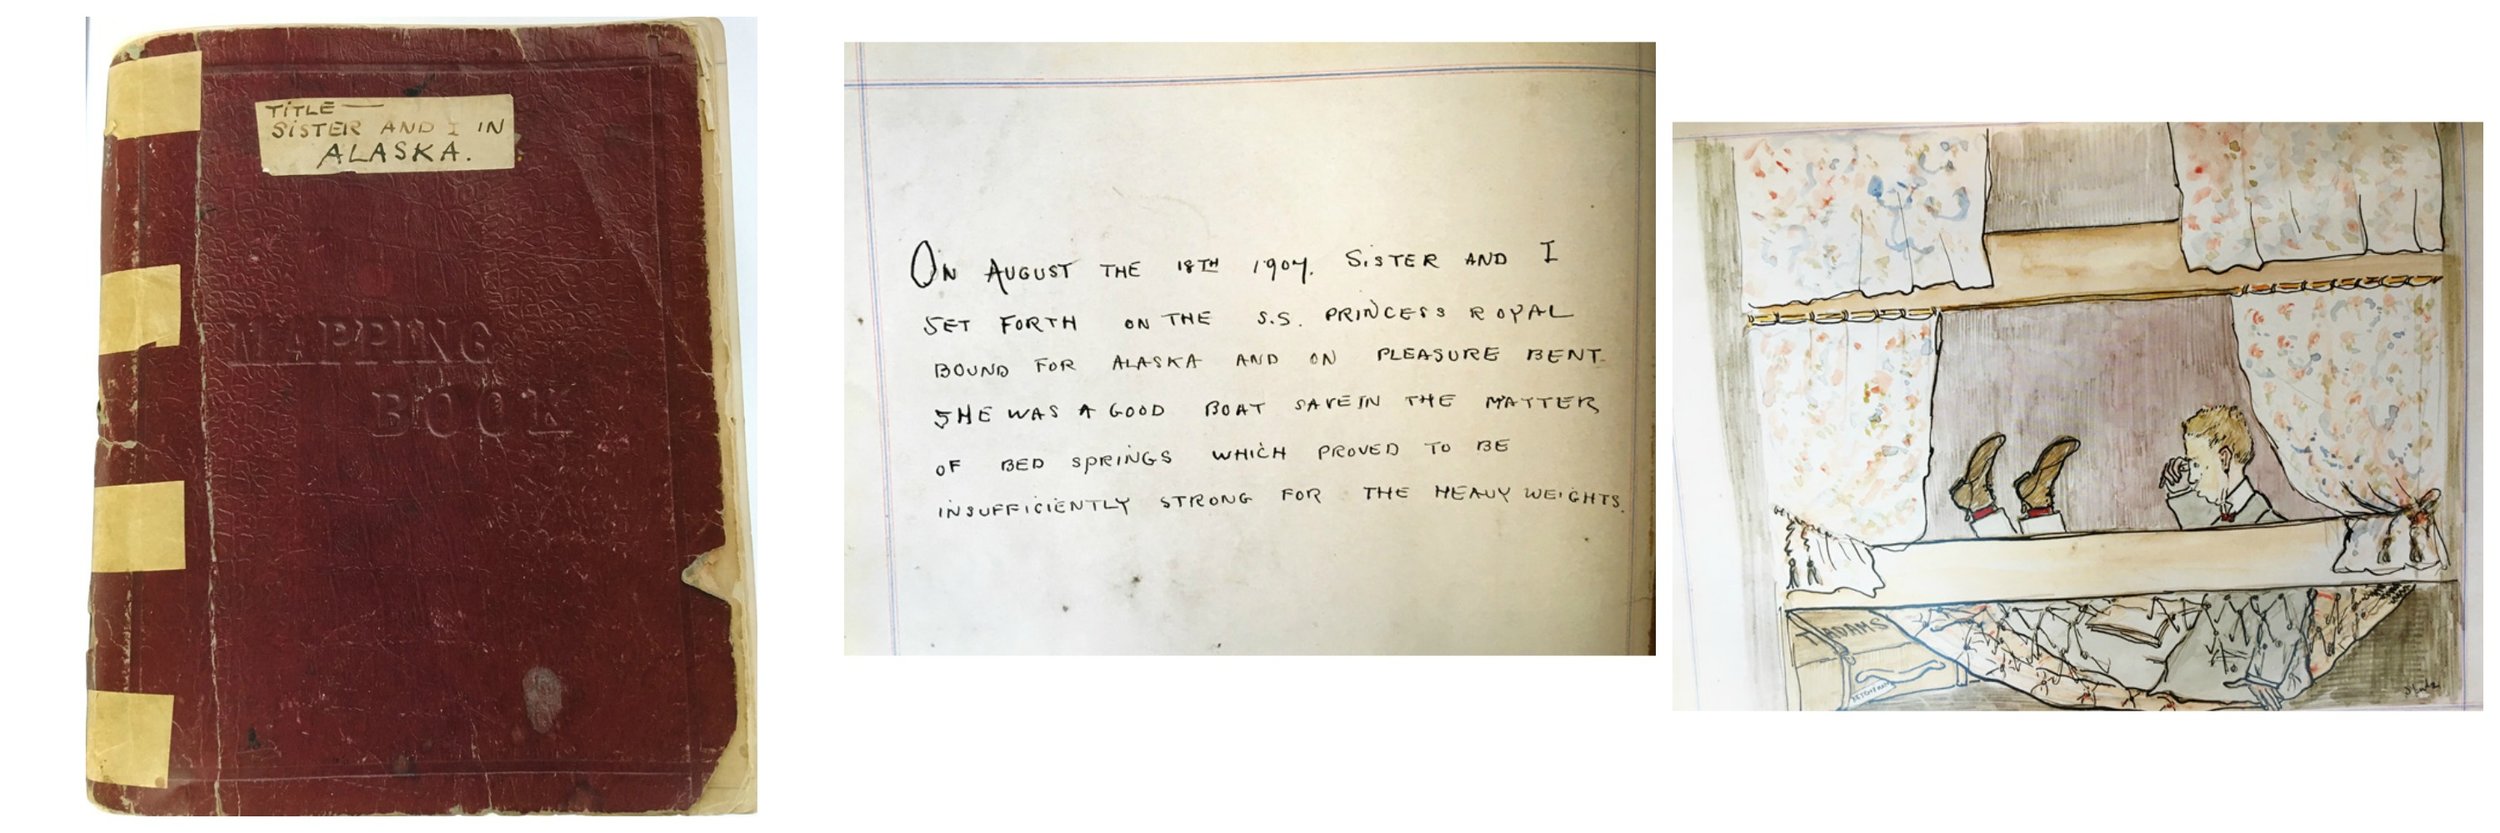 TITLE —
SISTER AND I IN
ALASKA.
MAPPING
BOOK
ON AUGUST THE 18TH 1907. SISTER AND I
SET FORTH ON THE S.S. PRINCESS ROYAL
BOUND FOR ALASKA AND ON PLEASURE BENT.
SHE WAS A GOOD BOAT SAVE IN THE MATTER
OF BED SPRINGS WHICH PROVED TO BE
INSUFFICIENTLY STRONG FOR THE HEAVY WEIGHTS.
T. ADAMS